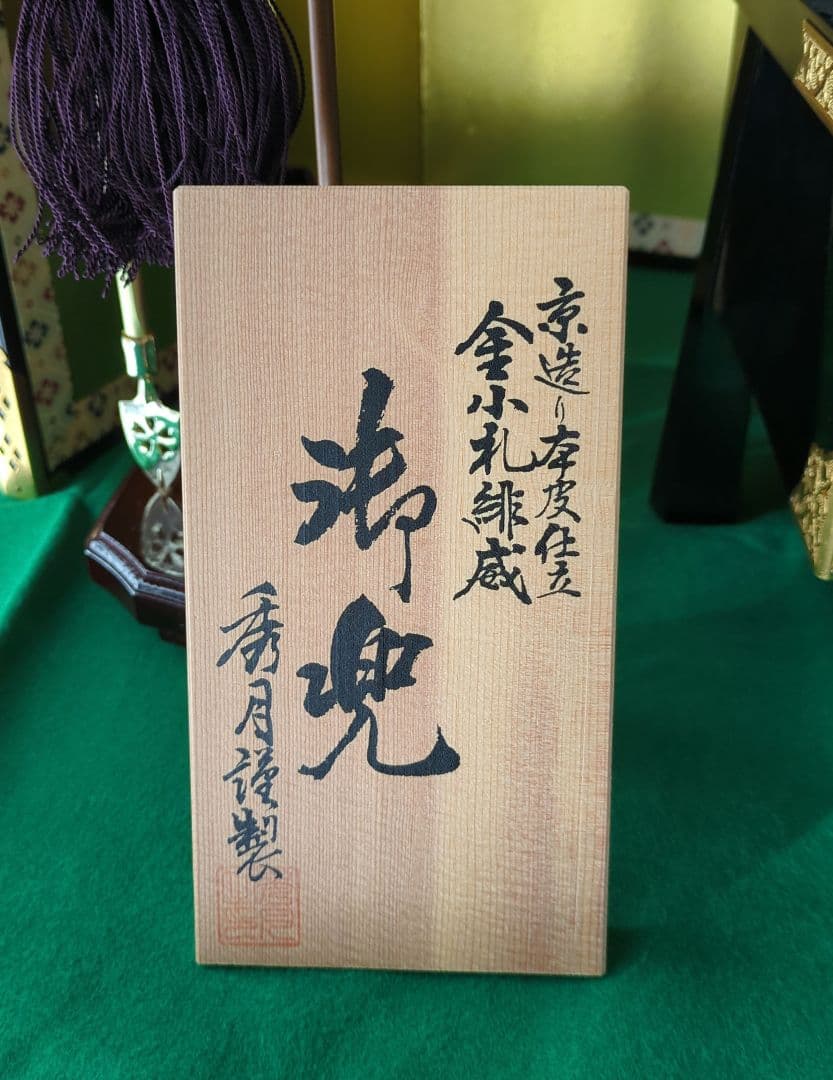 京造り本皮仕立
金小札緋威
御兜
秀月謹製